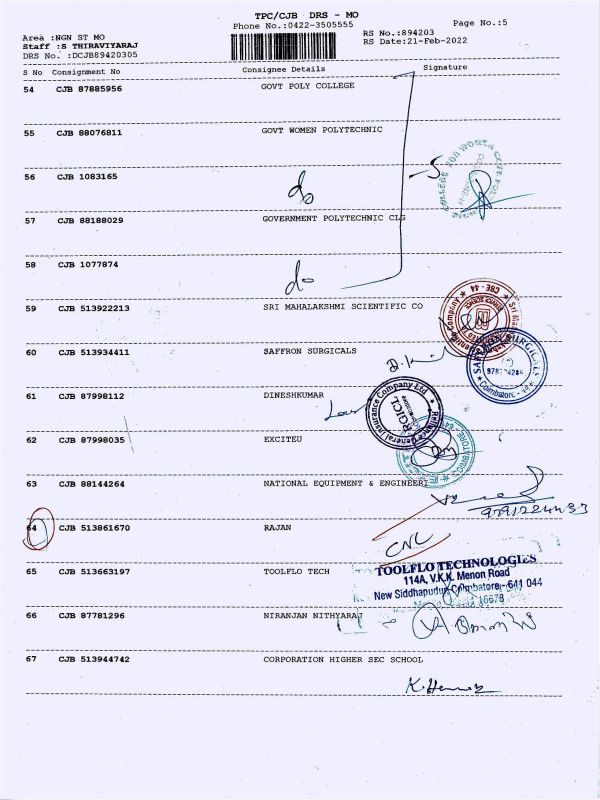 TPC/CJB DRS - MO
Phone No.:0422-3505555
Page No.:5
Area :NGN ST MO
Staff :S THIRAVIYARAJ
DRS No. :DCJB89420305
RS No.:894203
RS Date:21-Feb-2022
S No Consignment No Consignee Details Signature
54 CJB 87885956 GOVT POLY COLLEGE
55 CJB 88076811 GOVT WOMEN POLYTECHNIC
56 CJB 1083165
do
57 CJB 88188029 GOVERNMENT POLYTECHNIC CLG
58 CJB 1077874
do
59 CJB 513922213 SRI MAHALAKSHMI SCIENTIFIC CO
60 CJB 513934411 SAFFRON SURGICALS
61 CJB 87998112 DINESHKUMAR
Reliance General Insurance Company Ltd
RGICL
62 CJB 87998035 EXCITEU
63 CJB 88144264 NATIONAL EQUIPMENT & ENGINEERI
64 CJB 513861670 RAJAN
CNL
65 CJB 513663197 TOOLFLO TECH
TOOLFLO TECHNOLOGIES
114A, V.K.K. Menon Road
New Siddhapudur, Coimbatore - 641 044
66 CJB 87781296 NIRANJAN NITHYARAJ
67 CJB 513944742 CORPORATION HIGHER SEC SCHOOL